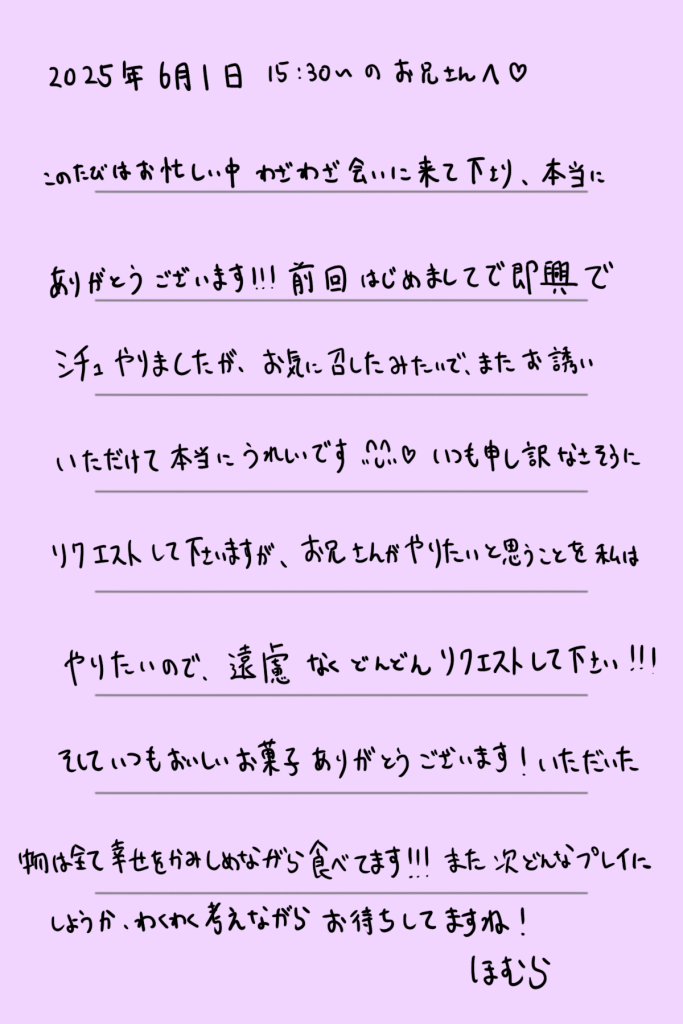 2025年6月1日 15:30〜のお兄さんへ♡
このたびはお忙しい中 わざわざ会いに来て下さり、本当に
ありがとうございます!!! 前回はじめましてで即興で
シチュやりましたが、お気に召したみたいで、またお誘い
いただけて本当にうれしいです ♡ いつも申し訳なさそうに
リクエストして下さいますが、お兄さんがやりたいと思うことを私は
やりたいので、遠慮なくどんどんリクエストして下さい!!!
そしていつもおいしいお菓子ありがとうございます!いただいた
物は全て幸せをかみしめながら食べてます!!! また次どんなプレイに
しようか、わくわく考えながらお待ちしてますね!
ほむら